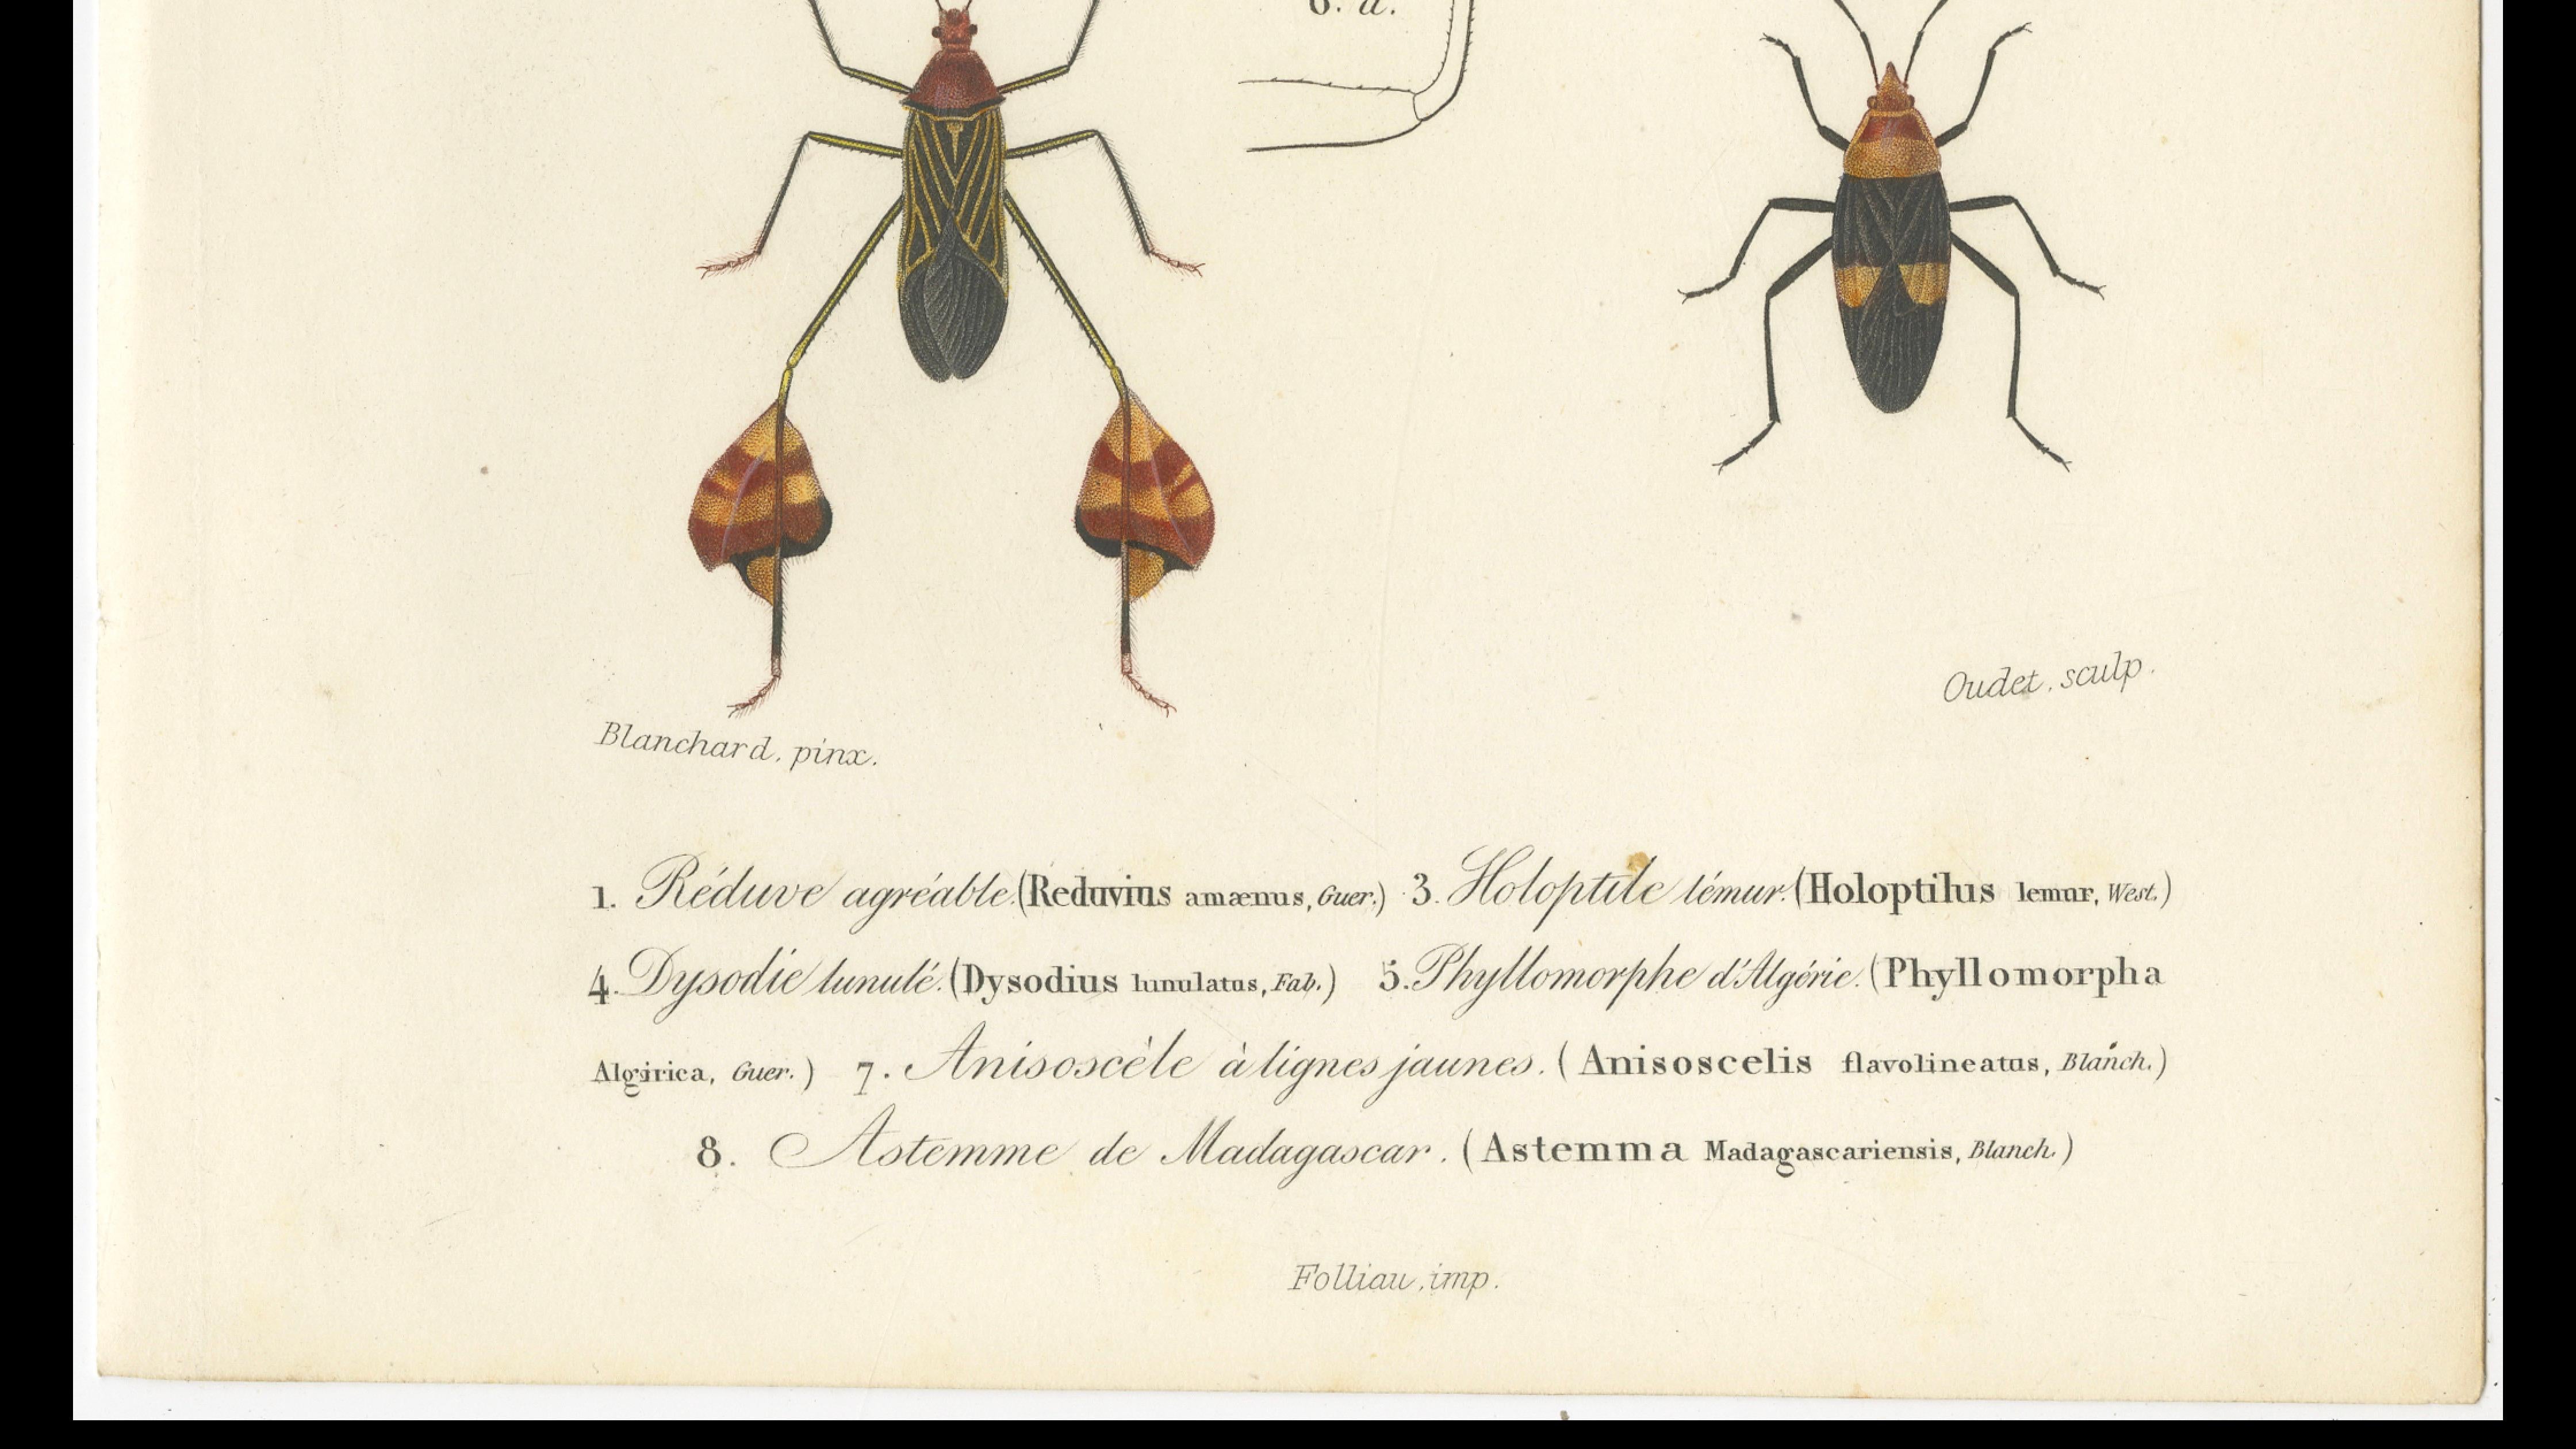 6. a.
Oudet, sculp.
Blanchard, pinx.
1. Réduve agréable. (Reduvius amænus, Guer.) 3. Holoptile lémur. (Holoptilus lemur, West.)
4. Dysodie lunulé. (Dysodius lunulatus, Fab.) 5. Phyllomorphe d'Algérie. (Phyllomorpha
Algirica, Guer.) 7. Anisoscèle à lignes jaunes. (Anisoscelis flavolineatus, Blanch.)
8. Astemme de Madagascar. (Astemma Madagascariensis, Blanch.)
Folliau, imp.